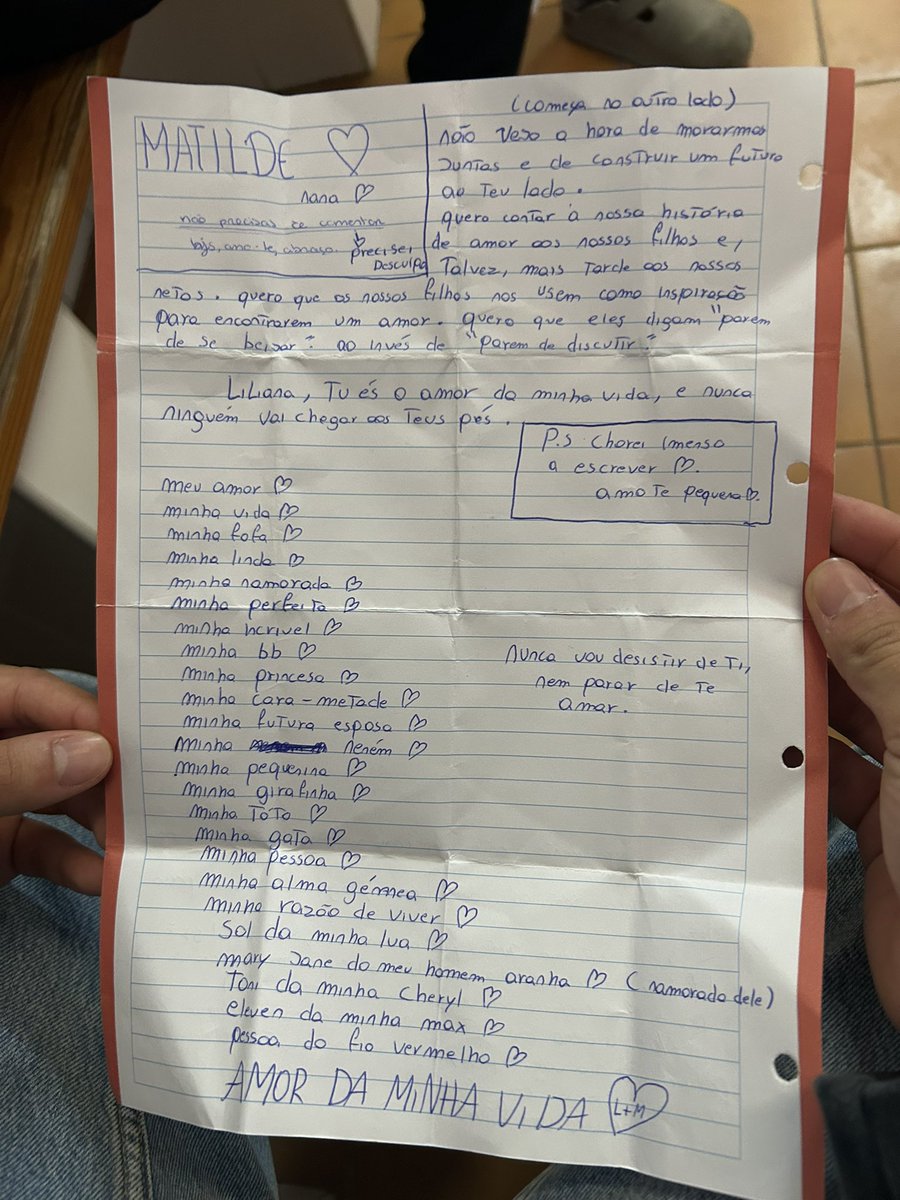 MATILDE ♡
nana ♡
não precisas te comentar
bjs, amo-te, abraço. precisei
Desculpa
(começa no outro lado)
não vejo a hora de morarmos
juntas e de construir um futuro
ao teu lado.
quero contar à nossa história
de amor aos nossos filhos e,
Talvez, mais tarde aos nossos
netos. quero que os nossos filhos nos usem como inspiração
para encontrarem um amor. quero que eles digam "parem
de se beijar" ao invés de "parem de discutir."
Liliana, Tu és o amor da minha vida, e nunca
ninguém vai chegar aos teus pés.
P.S chorei imenso
a escrever ♡.
amo te pequena♡.
meu amor ♡
minha vida ♡
minha fofa ♡
minha linda ♡
minha namorada ♡
minha perfeita ♡
minha ncrivel ♡
minha bb ♡
minha princesa ♡
minha cara-metade ♡
minha futura esposa ♡
minha neném ♡
minha pequenina ♡
minha girafinha ♡
minha Tótó ♡
minha gata ♡
minha pessoa ♡
minha alma gémea ♡
minha razão de viver ♡
sol da minha lua ♡
mary jane do meu homem aranha ♡ (namorada dele)
Toni da minha Cheryl ♡
eleven da minha max ♡
pessoa do fio vermelho ♡
AMOR DA MINHA VIDA
L+M
nunca vou desistir de ti,
nem parar de te
amar.